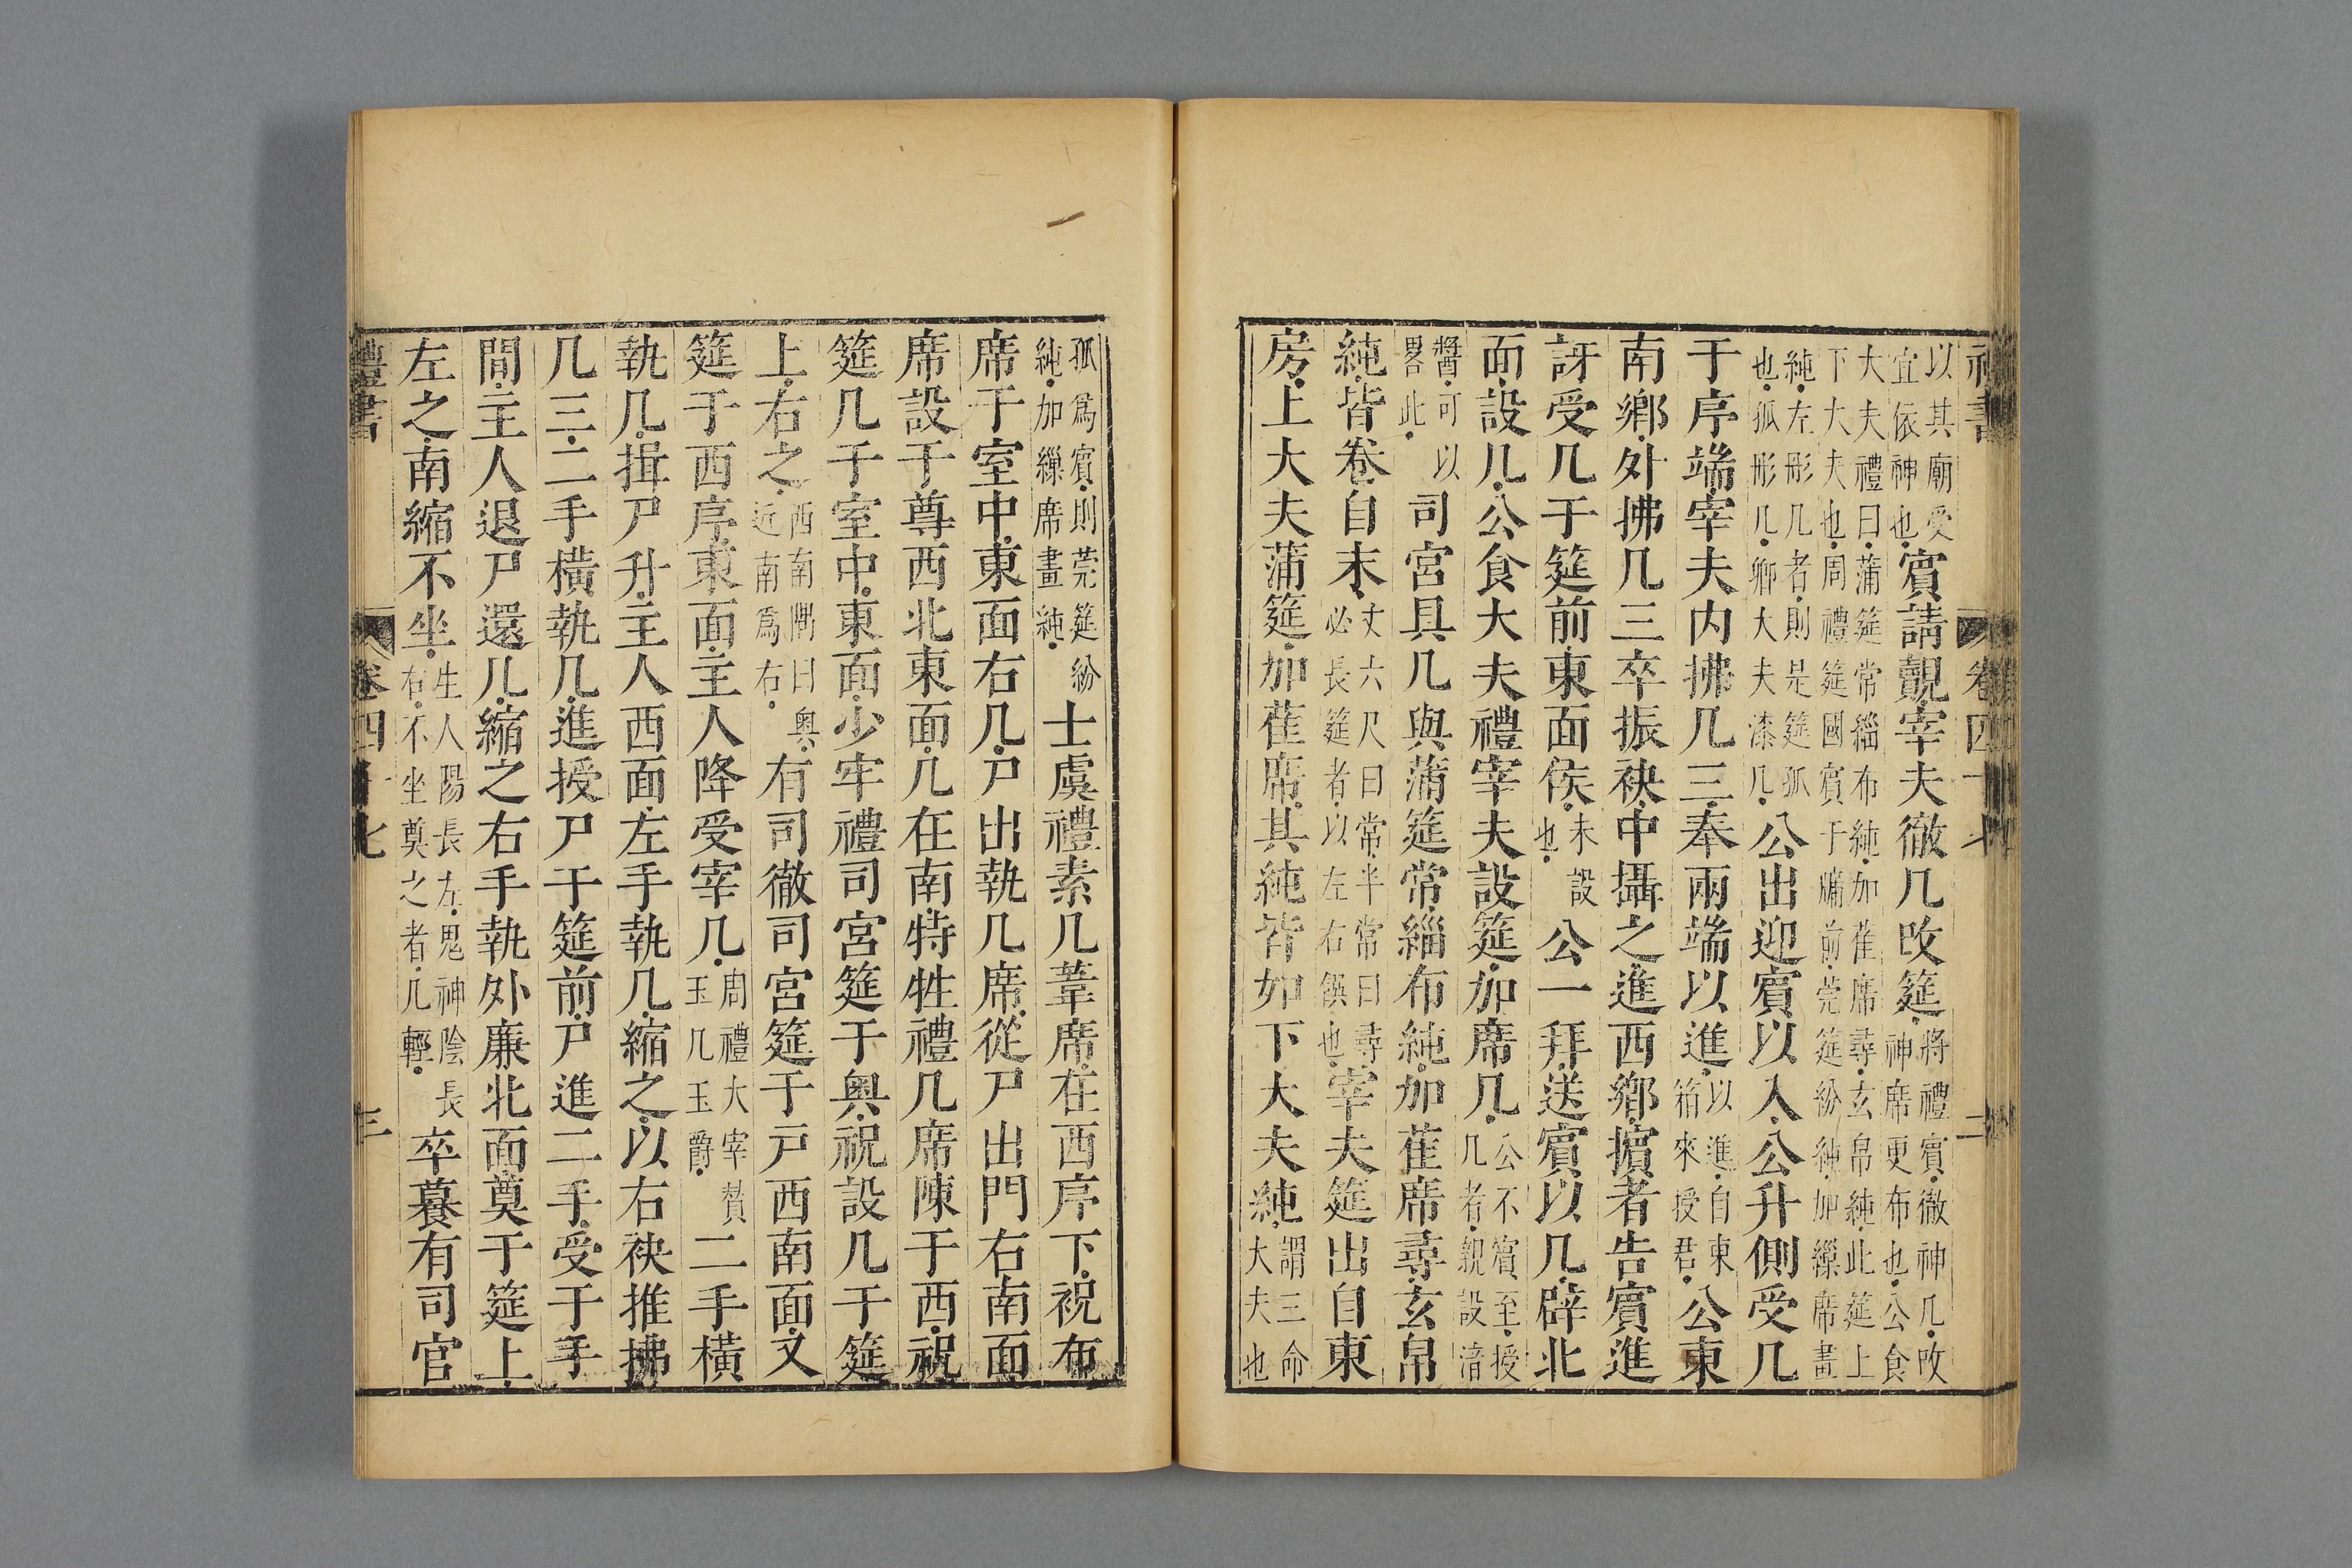 禮書 卷四十七 二
以其廟受宜依神也賓請覿宰夫徹几改筵將禮賓徹神几改神席更布也公食
大夫禮曰蒲筵常緇布純加萑席尋玄帛純此筵上下大夫也周禮筵國賓于牖前莞筵紛純加繅席畫
純左彤几者則是筵孤也孤彤几卿大夫漆几公出迎賓以入公升側受几
于序端宰夫内拂几三奉兩端以進以進自東箱來授君公東
南鄉外拂几三卒振袂中攝之進西鄉擯者告賓進
訝受几于筵前東面俟未設也公一拜送賓以几辟北
面設几公食大夫禮宰夫設筵加席几公不賓至授几者親設湆
醬可以畧此司宮具几與蒲筵常緇布純加萑席尋玄帛
純皆卷自末丈六尺曰常半常曰尋必長筵者以左右饌也宰夫筵出自東
房上大夫蒲筵加萑席其純皆如下大夫純謂三命大夫也
孤爲賓則莞筵紛純加繅席畫純士虞禮素几葦席在西序下祝布
席于室中東面右几尸出執几席從尸出門右南面
席設于尊西北東面几在南特牲禮几席陳于西祝
筵几于室中東面少牢禮司宮筵于奥祝設几于筵
上右之西南隅曰奥近南爲右有司徹司宮筵于戸西南面又
筵于西序東面主人降受宰几周禮大宰贊玉几玉爵二手橫
執几揖尸升主人西面左手執几縮之以右袂推拂
几三二手橫執几進授尸于筵前尸進二手受于手
間主人退尸還几縮之右手執外廉北面奠于筵上
左之南縮不坐生人陽長左鬼神陰長右不坐奠之者几輕卒有司官
禮書 卷四十七 三